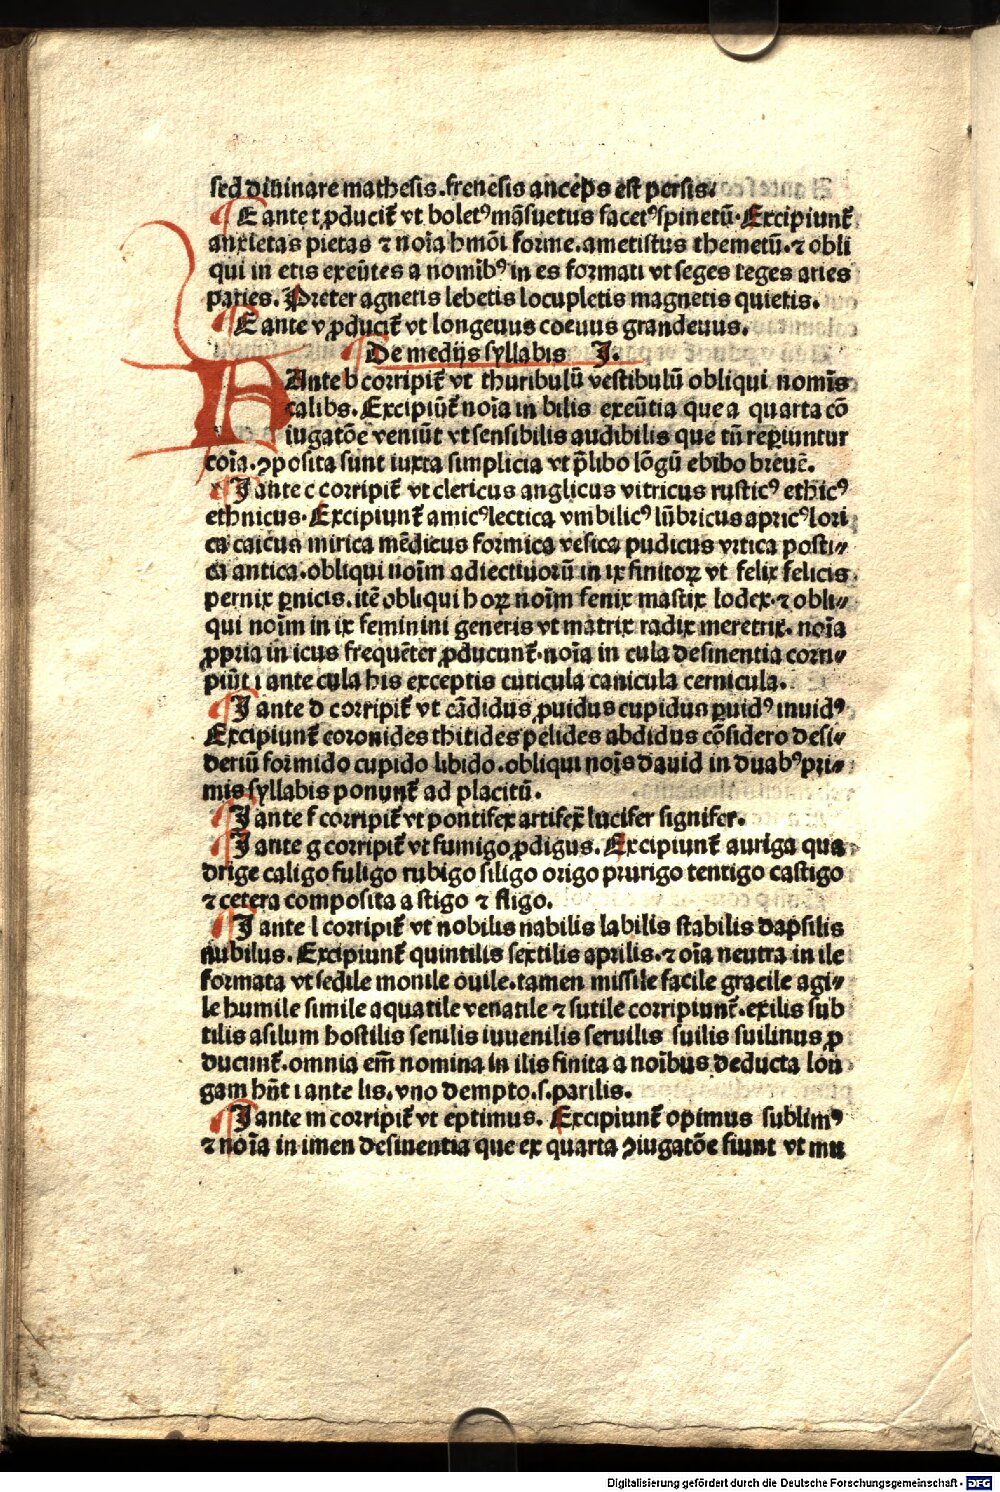 sed diuinare mathesis. frenesis anceps est persis.
¶ E ante t ꝓducit᷑ vt boletꝰ mãsuetus facetꝰ spinetũ. Excipiunt᷑
anxietas pietas ⁊ noĩa hmõi forme. ametistus themetũ. ⁊ obli
qui in etis exeũtes a nomĩbꝰ in es formati vt seges teges aries
paries. Preter agnetis lebetis locupletis magnetis quietis.
¶ E ante v ꝓducit᷑ vt longeuus coeuus grandeuus.
¶ De medijs syllabis J.
Ante b corripit᷑ vt thuribulũ vestibulũ obliqui nomĩs
calibs. Excipiũt᷑ noĩa in bilis exeũtia que a quarta cõ
iugatõe veniũt vt sensibilis audibilis que tñ reperiuntur
coĩa. ꝯposita sunt iuxta simplicia vt p̃libo lõgũ ebibo breuẽ.
¶ J ante c corripit᷑ vt clericus anglicus vitricus rusticꝰ ethicꝰ
ethnicus. Excipiunt᷑ amicꝰ lectica vmbilicꝰ lũbricus apricꝰ lori
ca caicus mirica mẽdicus formica vesica pudicus vrtica posti⸗
ca antica. obliqui noĩm adiectiuorũ in ix finitoꝝ vt felix felicis
pernix ꝑnicis. itẽ obliqui hoꝝ noĩm fenix mastix lodex. ⁊ obli⸗
qui noĩm in ix feminini generis vt matrix radix meretrix. noĩa
ꝓpria in icus frequẽter ꝓducunt᷑. noĩa in cula desinentia corri⸗
piũt i ante cula his exceptis cuticula canicula cernicula.
¶ J ante d corripit᷑ vt cãdidus ꝓuidus cupidus ꝑuidꝰ inuidꝰ
Excipiunt᷑ coronides thitides pelides abdidus cõsidero desi⸗
deriũ formido cupido libido. obliqui noĩs dauid in duabꝰ pri⸗
mis syllabis ponunt᷑ ad placitũ.
¶ J ante f corripit᷑ vt pontifex artifex lucifer signifer.
¶ J ante g corripit᷑ vt fumigo ꝓdigus. Excipiunt᷑ auriga qua
drige caligo fuligo rubigo siligo origo prurigo tentigo castigo
⁊ cetera composita a stigo ⁊ fligo.
¶ J ante l corripit᷑ vt nobilis nabilis labilis stabilis dapsilis
nubilus. Excipiunt᷑ quintilis sextilis aprilis. ⁊ oĩa neutra in ile
formata vt sedile monile ouile. tamen missile facile gracile agi⸗
le humile simile aquatile venatile ⁊ sutile corripiunt᷑. exilis sub
tilis asilum hostilis senilis iuuenilis seruilis suilis suilinus ꝓ
ducunt᷑. omnia em̃ nomina in ilis finita a noĩbus deducta lon
gam hñt i ante lis. vno dempto .s. parilis.
¶ J ante m corripit᷑ vt eptimus. Excipiunt᷑ opimus sublimꝰ
⁊ noĩa in imen desinentia que ex quarta ꝯiugatõe fiunt vt mu
Digitalisierung gefördert durch die Deutsche Forschungsgemeinschaft - DFG